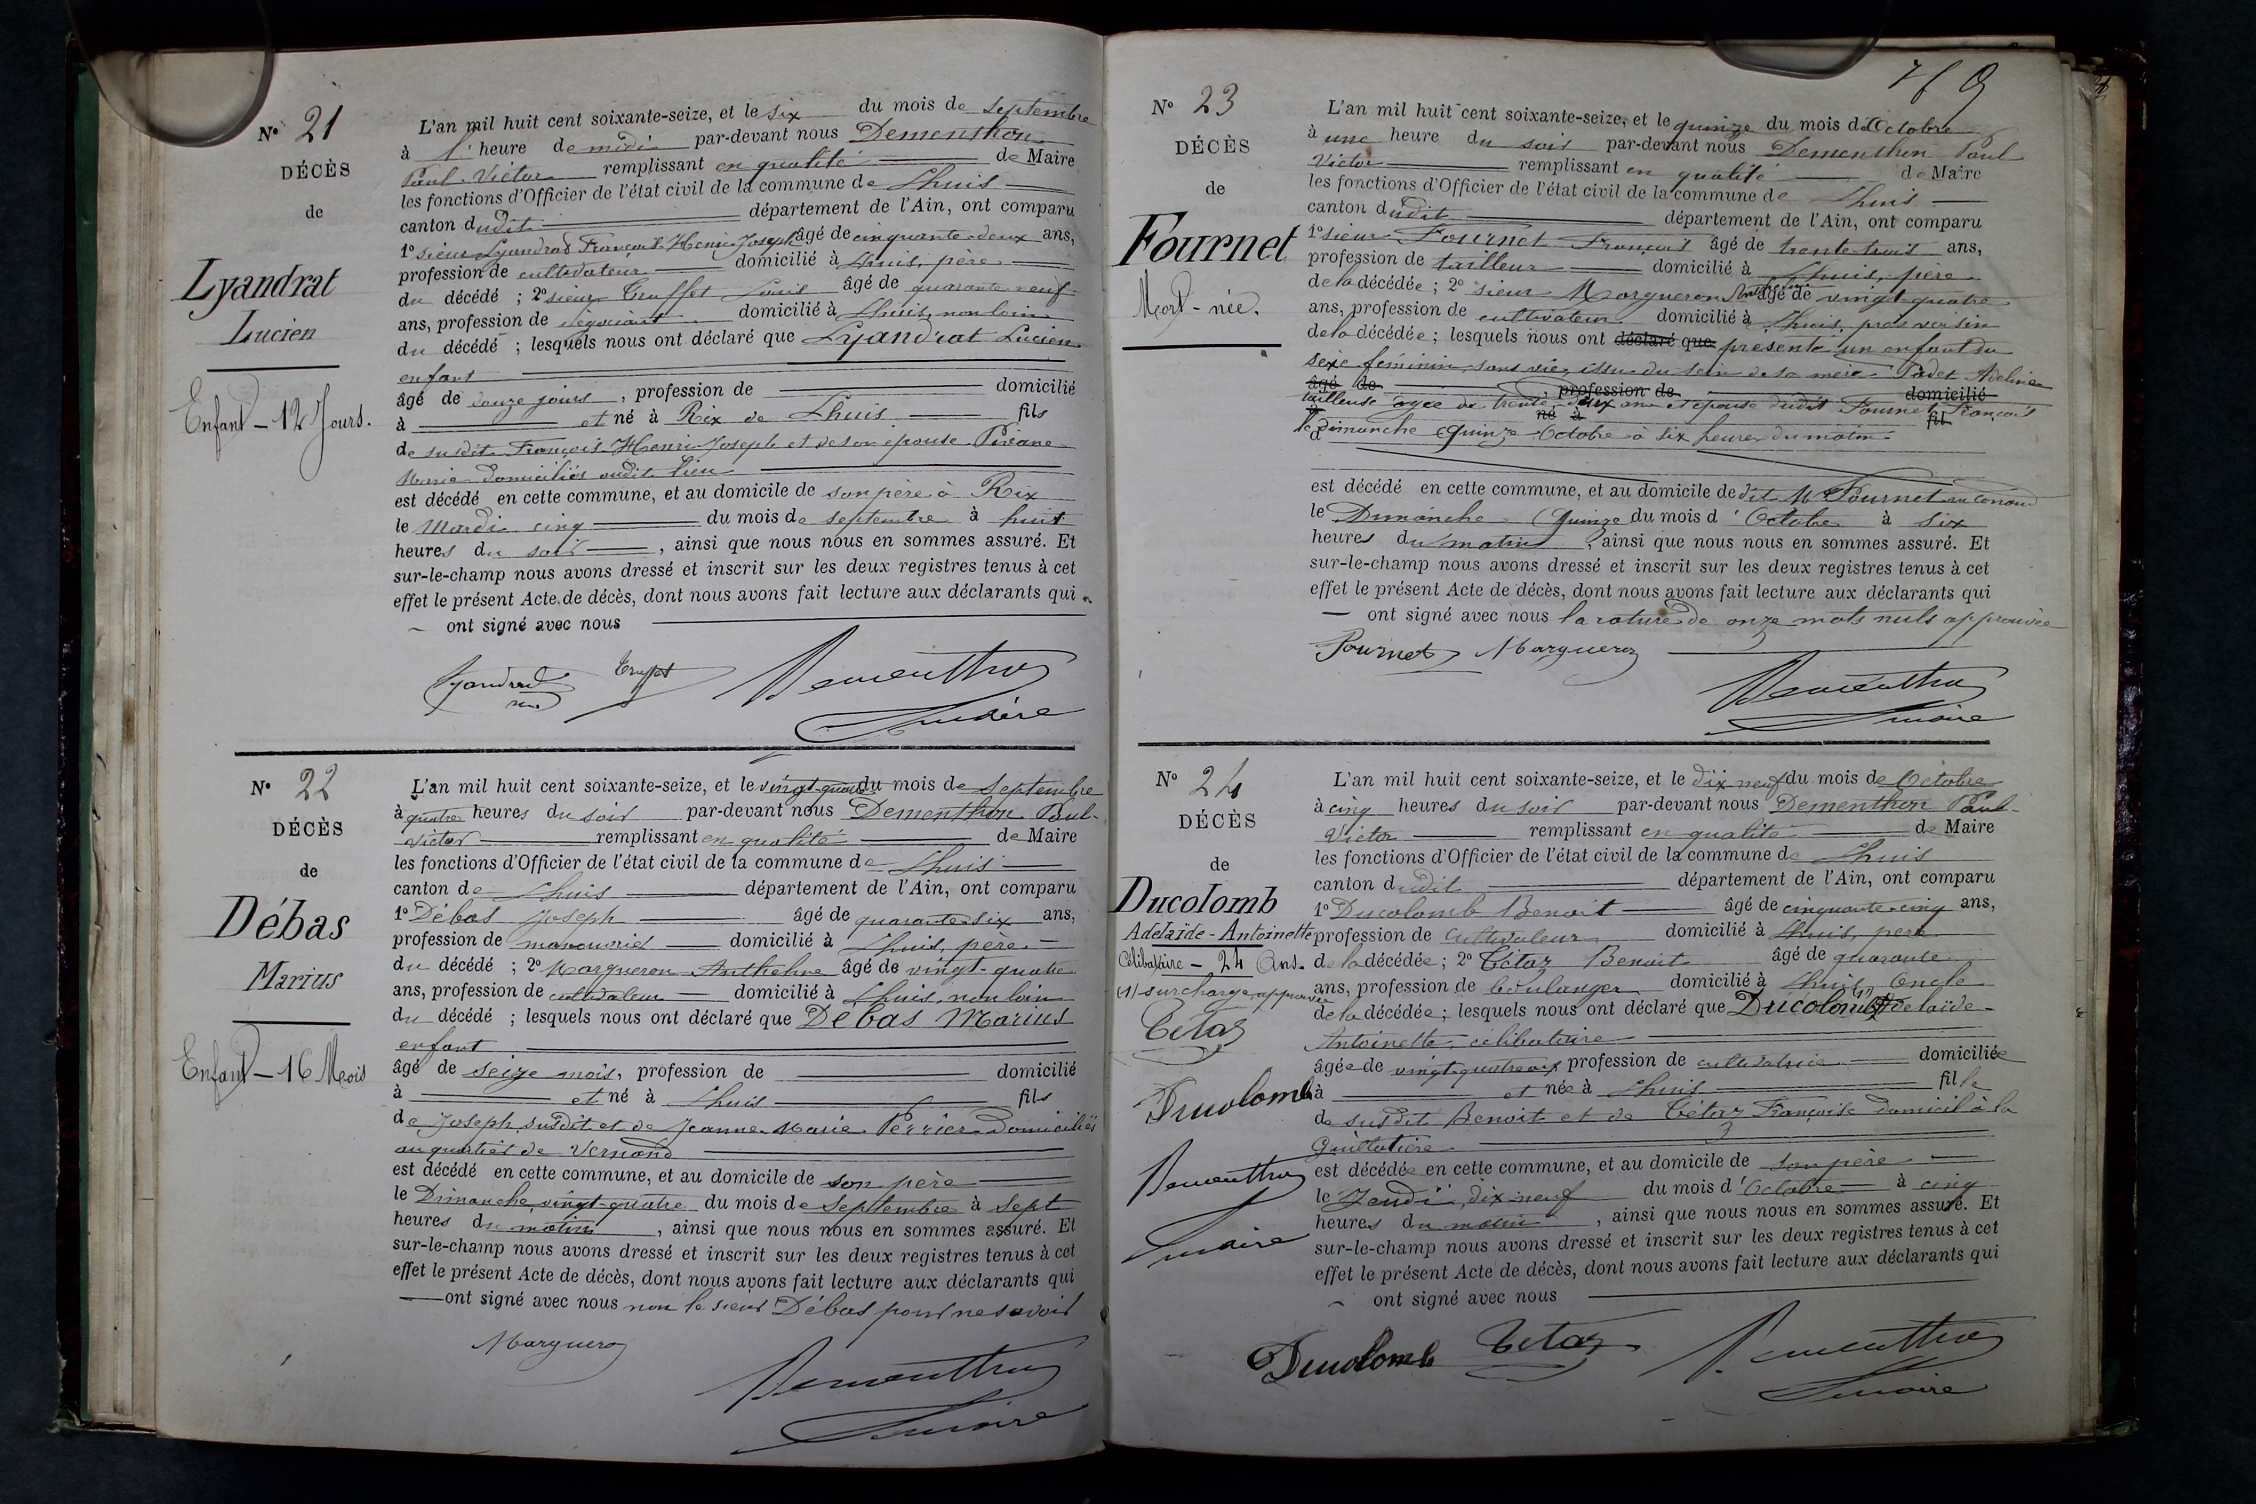 N° 21
DÉCÈS
de
Lyandrat
Lucien
Enfant - 12 Jours.
L'an mil huit cent soixante-seize, et le six du mois de septembre
à 1' heure de midi par-devant nous Dementhon
Paul-Victor remplissant en qualité de Maire
les fonctions d'Officier de l'état civil de la commune de Lhuis
canton dudit département de l'Ain, ont comparu
1° sieur Lyandrat François-Henri-Joseph âgé de cinquante-deux ans,
profession de cultivateur domicilié à Lhuis, père
du décédé ; 2° sieur Truffet Louis âgé de quarante neuf
ans, profession de négociant domicilié à Lhuis, non loin
du décédé ; lesquels nous ont déclaré que Lyandrat Lucien
enfant
âgé de douze jours, profession de domicilié
à et né à Rix de Lhuis fils
de susdit François-Henri-Joseph et de son épouse
Marie domiciliés audit lieu
est décédé en cette commune, et au domicile de son père à Rix
le Mardi cinq du mois de septembre à huit
heures du soir, ainsi que nous nous en sommes assuré. Et
sur-le-champ nous avons dressé et inscrit sur les deux registres tenus à cet
effet le présent Acte de décès, dont nous avons fait lecture aux déclarants qui
ont signé avec nous
Truffet Dementhon
maire
N° 22
DÉCÈS
de
Débas
Marius
Enfant - 16 Mois
L'an mil huit cent soixante-seize, et le vingt-quatre du mois de Septembre
à quatre heures du soir par-devant nous Dementhon Paul-
Victor remplissant en qualité de Maire
les fonctions d'Officier de l'état civil de la commune de Lhuis
canton de Lhuis département de l'Ain, ont comparu
1° Débas Joseph âgé de quarante-six ans,
profession de manouvrier domicilié à Lhuis, père
du décédé ; 2° Margueron Anthelme âgé de vingt-quatre
ans, profession de cultivateur domicilié à Lhuis, non loin
du décédé ; lesquels nous ont déclaré que Débas Marius
enfant
âgé de seize mois, profession de domicilié
à et né à Lhuis fils
de Joseph susdit et de Jeanne-Marie Perrier domiciliés
au quartier de Vernond
est décédé en cette commune, et au domicile de son père
le Dimanche vingt-quatre du mois de Septembre à sept
heures du matin, ainsi que nous nous en sommes assuré. Et
sur-le-champ nous avons dressé et inscrit sur les deux registres tenus à cet
effet le présent Acte de décès, dont nous avons fait lecture aux déclarants qui
ont signé avec nous non le sieur Débas pour ne savoir
Margueron
Dementhon
maire
N° 23
DÉCÈS
de
Fournet
Mort-née.
L'an mil huit cent soixante-seize, et le quinze du mois d'Octobre
à une heure du soir par-devant nous Dementhon Paul
Victor remplissant en qualité de Maire
les fonctions d'Officier de l'état civil de la commune de Lhuis
canton dudit département de l'Ain, ont comparu
1° sieur Fournet François âgé de trente-trois ans,
profession de tailleur domicilié à Lhuis, père
de la décédée ; 2° sieur Margueron âgé de vingt-quatre
ans, profession de cultivateur domicilié à Lhuis, proche voisin
de la décédée ; lesquels nous ont déclaré que présenté un enfant du
sexe féminin, sans vie, issu du sein de sa mère Padet
âgé de profession de domicilié
tailleuse agée de trente-deux ans et épouse dudit Fournet François
à né à fil
le Dimanche Quinze Octobre à six heures du matin
d
est décédé en cette commune, et au domicile de dit M Fournet
le Dimanche Quinze du mois d'Octobre à six
heures du matin, ainsi que nous nous en sommes assuré. Et
sur-le-champ nous avons dressé et inscrit sur les deux registres tenus à cet
effet le présent Acte de décès, dont nous avons fait lecture aux déclarants qui
ont signé avec nous la rature de onze mots nuls approuvée
Fournet Margueron
Dementhon
maire
N° 24
DÉCÈS
de
Ducolomb
Adelaïde-Antoinette
Célibataire - 24 Ans.
(1) surcharge approuvée
Tétaz
Ducolomb
Dementhon
maire
L'an mil huit cent soixante-seize, et le dix neuf du mois de Octobre
à cinq heures du soir par-devant nous Dementhon Paul-
Victor remplissant en qualité de Maire
les fonctions d'Officier de l'état civil de la commune de Lhuis
canton dudit département de l'Ain, ont comparu
1° Ducolomb Benoit âgé de cinquante-cinq ans,
profession de cultivateur domicilié à Lhuis, père
de la décédée ; 2° Tétaz Benoit âgé de quarante
ans, profession de boulanger domicilié à Lhuis, Oncle
de la décédée ; lesquels nous ont déclaré que Ducolomb (1) Adelaïde-
Antoinette, célibataire
âgée de vingt-quatre ans profession de cultivatrice domiciliée
à et née à Lhuis fille
de susdit Benoit et de Tétaz Françoise domicil à la
est décédée en cette commune, et au domicile de son père
le Jeudi dix neuf du mois d'Octobre à cinq
heures du matin, ainsi que nous nous en sommes assuré. Et
sur-le-champ nous avons dressé et inscrit sur les deux registres tenus à cet
effet le présent Acte de décès, dont nous avons fait lecture aux déclarants qui
ont signé avec nous
Ducolomb Tétaz Dementhon
maire